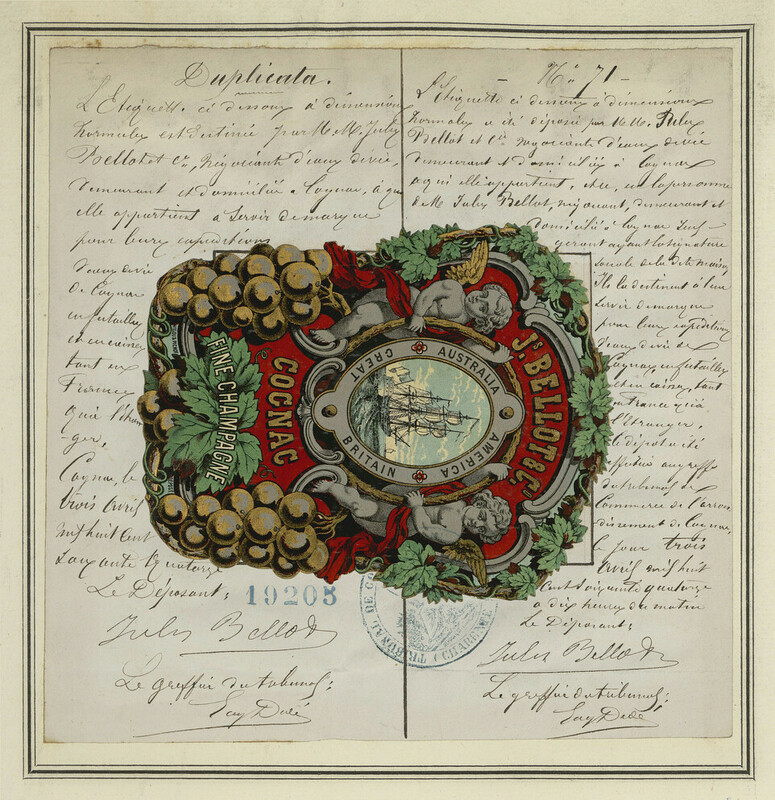 Duplicata.
L'Etiquette ci dessous à dimensions
normales est destinée par M.M. Jules
Bellot et Cie, Négociants d'eaux de vie,
demeurant et domiciliés à Cognac, à qui
elle appartient à servir de marque
pour leurs expéditions
d'eaux de vie
de Cognac
en futailles
et en caisses
tant en
France
qu'à l'étran
-ger.
Cognac le
trois avril
mil huit cent
soixante quatorze
Le Déposant;
Jules Bellot
Le greffier du tribunal;
19205
- No 71 -
L'Etiquette ci dessous à dimensions
normales a été déposée par M.M. Jules
Bellot et Cie négociants d'eaux de vie
demeurant et domiciliés à Cognac
à qui elle appartient, et ce, en la personne
de M. Jules Bellot, négociant, demeurant et
domicilié à Cognac seul
gérant ayant la signature
sociale de la dite maison,
Ils la destinent à leur
servir de marque
pour leurs expéditions
d'eaux de vie de
Cognac, en futailles
et en caisses, tant
en France qu'à
l'Etranger,
le dépôt a été
effectué au greffe
du tribunal de
Commerce de l'arron
dissement de Cognac,
le jour trois
avril mil huit
cent soixante quatorze
à dix heures du matin
Le Déposant;
Jules Bellot
Le greffier du tribunal;
Js. BELLOT & Co.
AUSTRALIA
AMERICA
GREAT
BRITAIN
COGNAC
FINE CHAMPAGNE
TRIBUNAL DE CO
(CHARENTE)